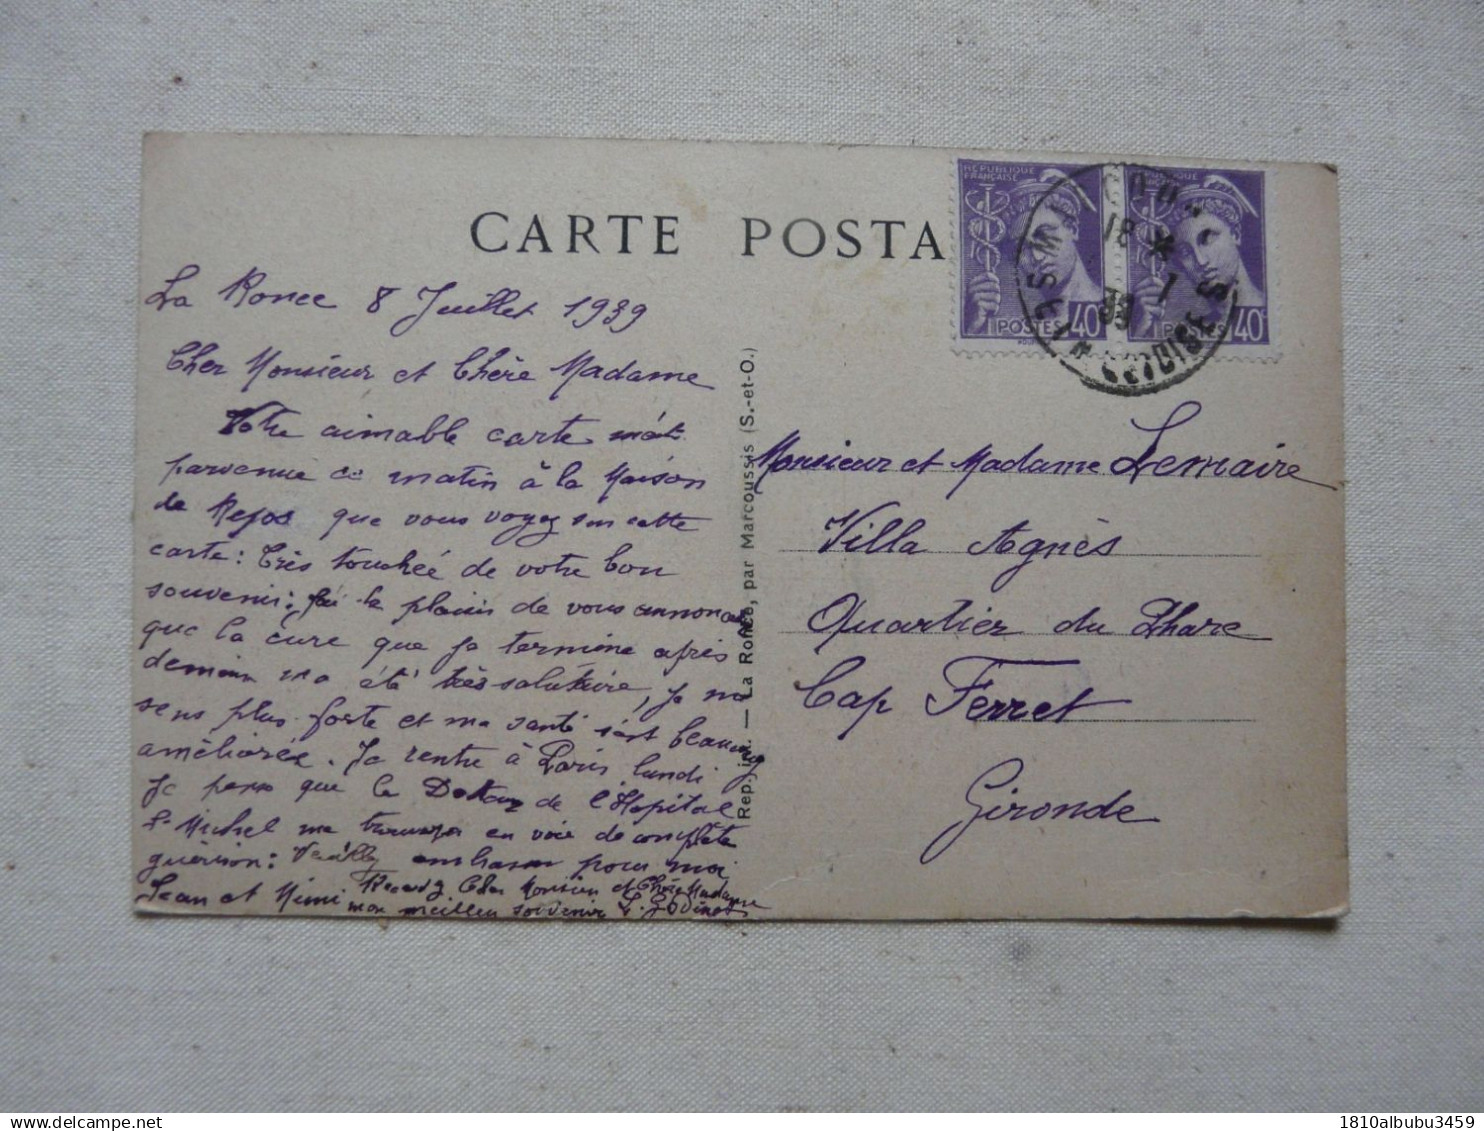 CARTE POSTA
La Ronce 8 Juillet 1939
Cher Monsieur et Chère Madame
Votre aimable carte m'est
parvenue ce matin à la Maison
de Repos que vous voyez sur cette
carte : Très touchée de votre bon
souvenir ; j'ai le plaisir de vous annoncer
que la cure que je termine après
demain m'a été très salutaire, je me
sens plus forte et ma santé s'est beaucoup
améliorée. Je rentre à Paris lundi
Je pense que le Docteur de l'Hôpital
St Michel me trouvera en voie de complète
guérison : Veuillez embrasser pour moi
Jean et Mimi Recevez Cher Monsieur et Chère Madame
mon meilleur souvenir
Rep. in. — La Ronce, par Marcoussis (S.-et-O.)
REPUBLIQUE
FRANÇAISE
POSTES 40c
40c
18
1
39
SEINE-&-OISE
Monsieur et Madame Lemaire
Villa Agnès
Quartier du Phare
Cap Ferret
Gironde
1810albubu3459